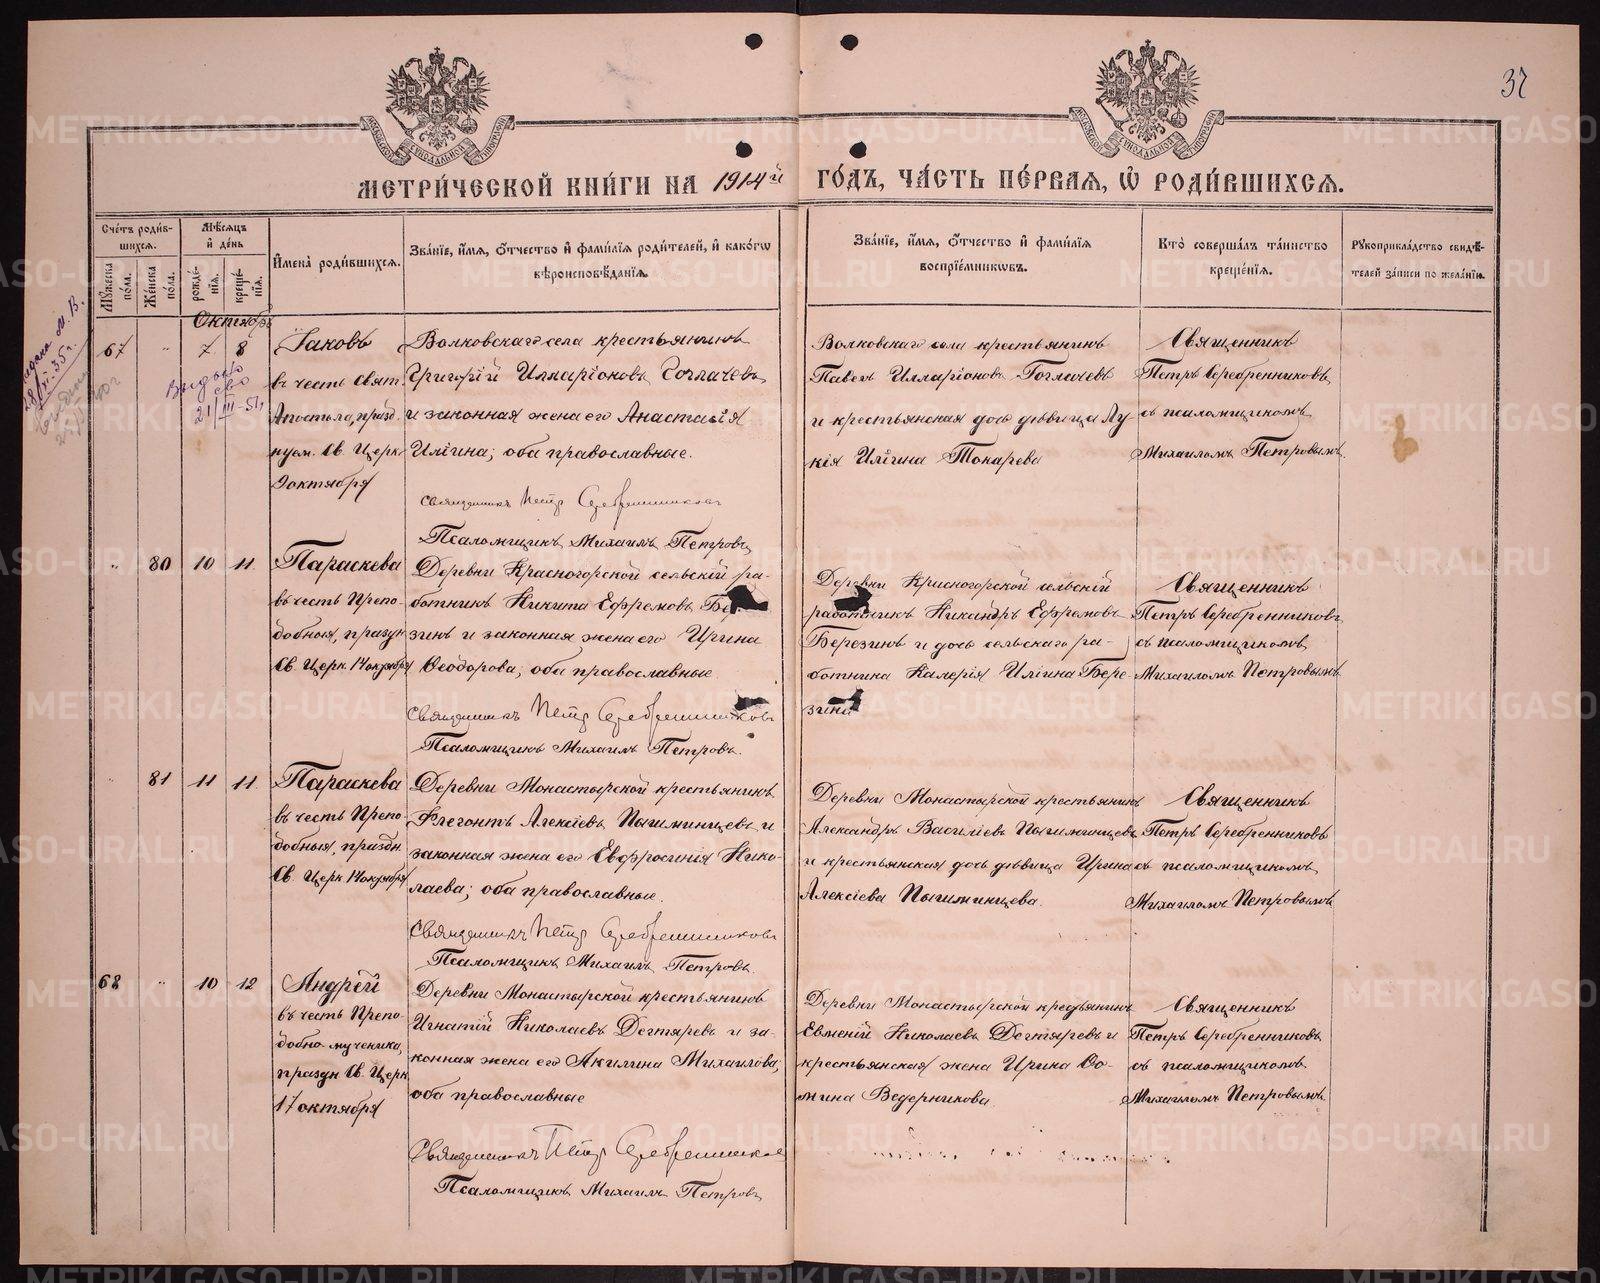 37
МЕТРИ́ЧЕСКОЙ КНИ́ГИ НА 1914й ГО́ДЪ, ЧА́СТЬ ПЕ́РВАЯ, Ѡ РОДИ́ВШИХСЯ.
Сче́тъ роди́вшихся.
Му́жеска по́ла.
Же́нска по́ла.
Мѣ́сяцъ и де́нь
рожде́нїя.
креще́нїя.
Имена̀ роди́вшихся.
Зва́нїе, и́мя, о́тчество и фами́лїя роди́телей, и како́гѡ вѣроисповѣ́данїя.
Зва́нїе, и́мя, о́тчество и фами́лїя воспрїе́мникѡвъ.
Кто̀ соверша́лъ та́инство креще́нїя.
Рукоприкла́дство свидѣ́телей за́писи по жела́нїю.
Октябрь
67 " 7 8
Іаковъ
въ честь Свят.
Апостола, празд
нуем. Св. Церк.
9 октября
Волковскаго села крестьянинъ
Григорій Илларіоновъ Гоглачевъ
и законная жена его Анастасія
Илiина; оба православные.
Священникъ Петр Серебренниковъ
Псаломщикъ Михаилъ Петровъ
Волковскаго села крестьянинъ
Павелъ Илларіоновъ Гоглачевъ
и крестьянская дочь дѣвица Лу
кія Илiина Токарева
Священникъ
Петръ Серебренниковъ
съ псаломщикомъ
Михаиломъ Петровымъ.
" 80 10 11
Параскева
въ честь Препо-
добныя, праздн
Св. Церк. 14 октября
Деревни Красногорской сельскій ра-
ботникъ Никита Ефремовъ Бе
зинъ и законная жена его Ирина
Ѳеодорова; оба православные
Священникъ Петр Серебренниковъ
Псаломщикъ Михаилъ Петровъ.
Деревни Красногорской сельскій
работникъ Никандръ Ефремовъ
Березинъ и дочь сельскаго ра-
ботника Калерія Илiина Бере-
зина
Священникъ
Петръ Серебренниковъ
съ псаломщикомъ
Михаиломъ Петровымъ
" 81 11 11
Параскева
въ честь Препо-
добныя, праздн.
Св. Церк. 14 октября
Деревни Монастырской крестьянинъ
Флегонтъ Алексіевъ Пышминцевъ и
законная жена его Евфросинія Нико-
лаева; оба православные.
Священникъ Петр Серебренниковъ
Псаломщикъ Михаилъ Петровъ.
Деревни Монастырской крестьянинъ
Александръ Василіевъ Пышминцевъ
и крестьянская дочь дѣвица Ирина
Алексіева Пышминцева.
Священникъ
Петръ Серебренниковъ
съ псаломщикомъ
Михаиломъ Петровымъ
68 " 10 12
Андрей
въ честь Препо-
добно-мученика,
праздн Св. Церк
17 октября
Деревни Монастырской крестьянинъ
Игнатій Николаевъ Дегтяревъ и за-
конная жена его Акилина Михаилова;
оба православные
Священникъ Петр Серебренников
Псаломщикъ Михаилъ Петровъ
Деревни Монастырской крестьянинъ
Евменій Николаевъ Дегтяревъ и
крестьянская жена Ирина Ѳо-
мина Ведерникова
Священникъ
Петръ Серебренниковъ
съ псаломщикомъ
Михаиломъ Петровымъ
21/III-51
METRIKI.GASO-URAL.RU